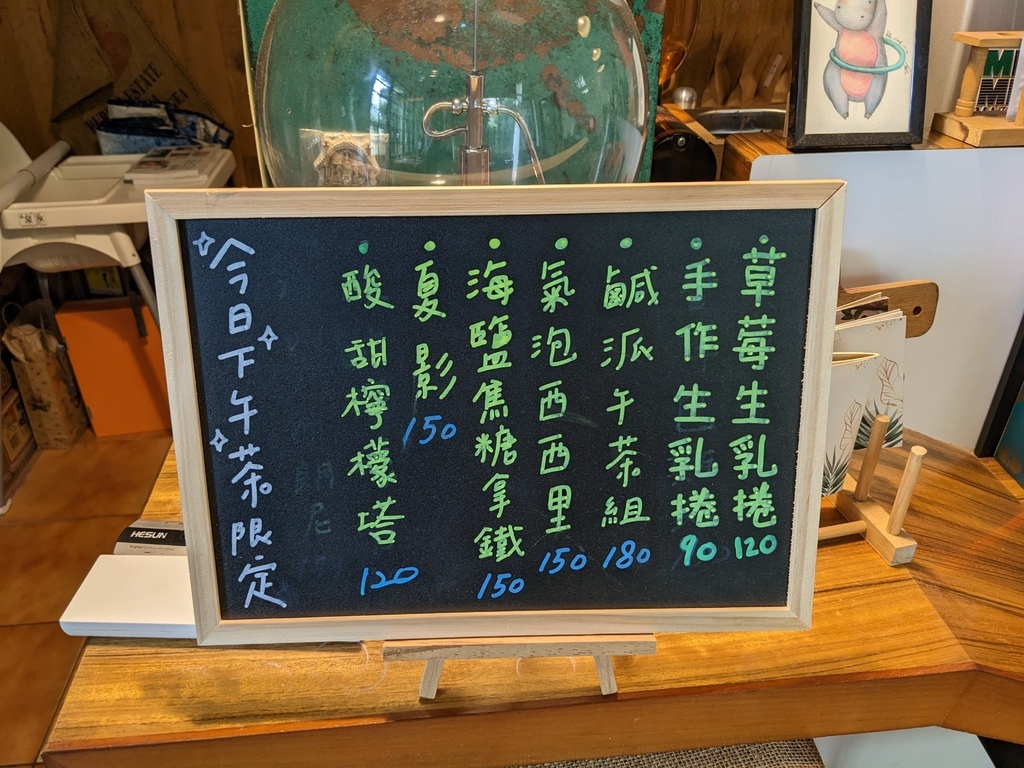 草莓生乳捲 120
手作生乳捲 90
鹹派午茶組 180
氣泡西西里 150
海鹽焦糖拿鐵 150
夏影 150
酸甜檸檬塔 120
今日下午茶限定
HESUN
M